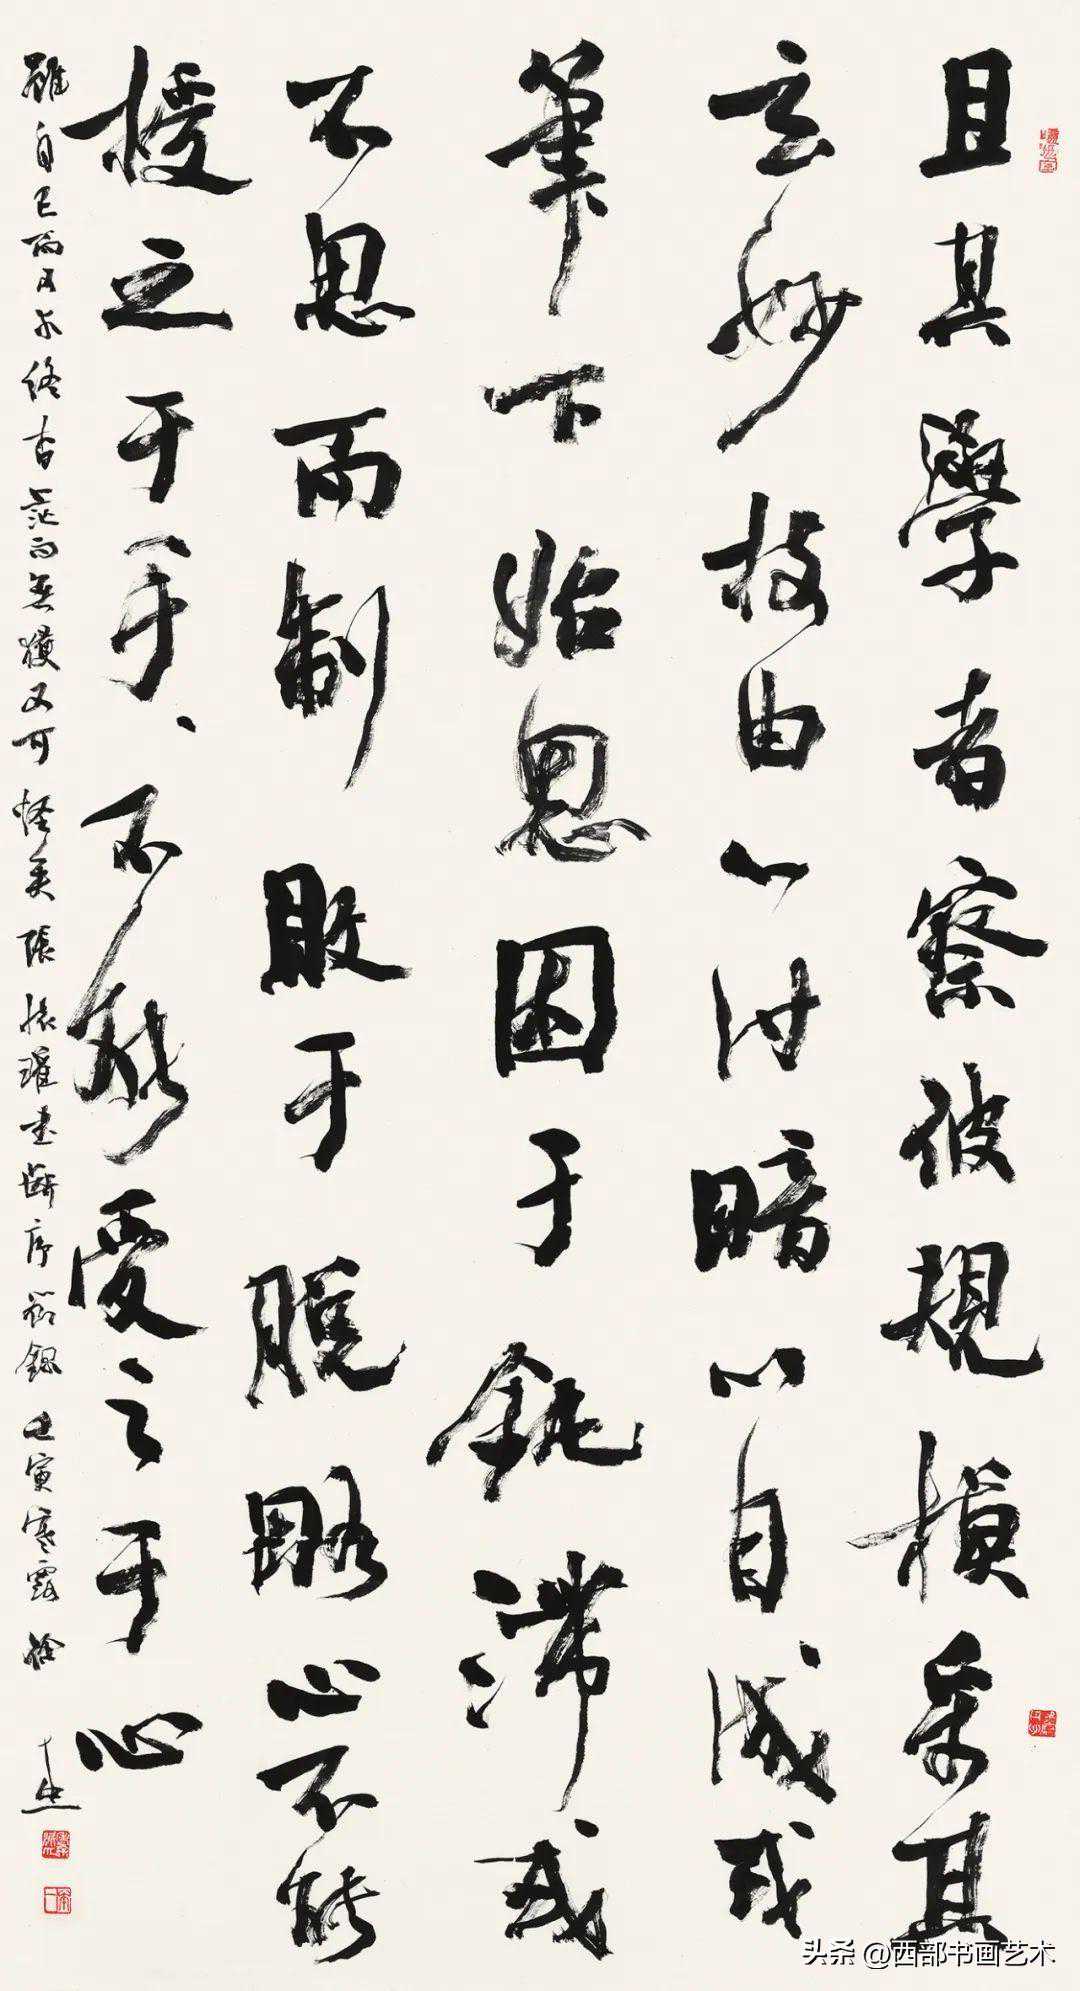 且其學者察彼規模采其
玄妙技由心付暗以目成或
筆下始思困于鈍滯或
不思而制敗于脱略心不能
授之于手、不能受之于心
雖自己而可求終杳茫而無獲又可怪矣張懷瓘書斷序節錄 壬寅寒露徐
头条 @西部书画艺术